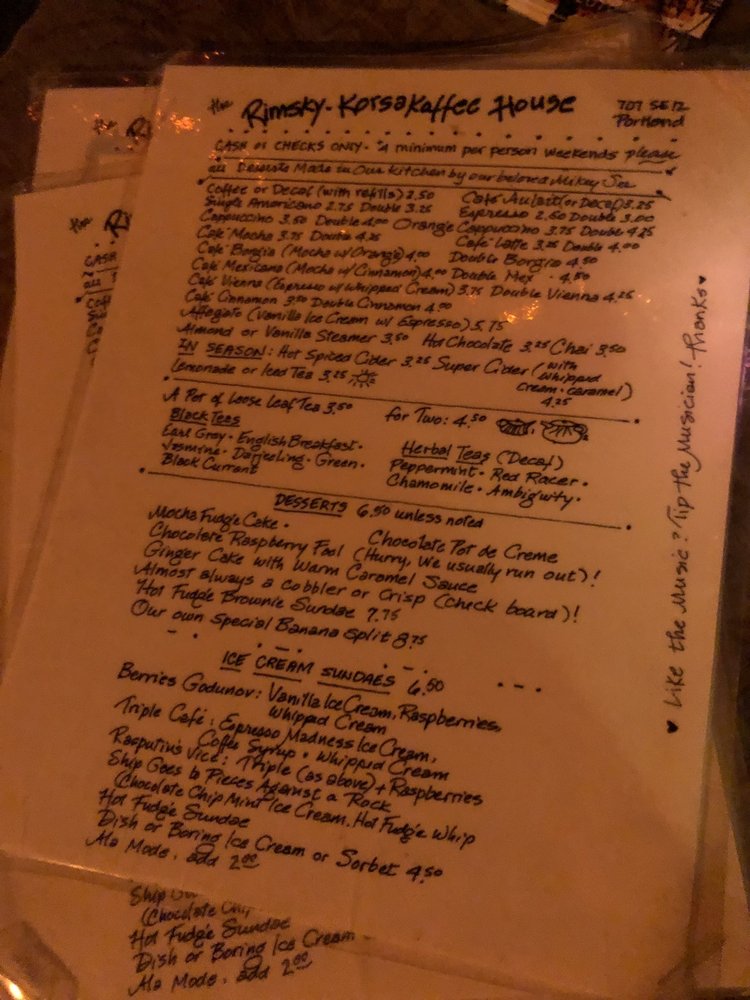 the Rimsky-Korsakoffee House 707 SE 12
Portland
CASH or CHECKS ONLY. minimum per person weekends please
all Desserts Made in Our kitchen by our beloved
Coffee or Decaf (with refills) 2.50 Café Aulait (or Decaf) 3.25
Single Americano 2.75 Double 3.25 Espresso 2.50 Double 3.00
Cappuccino 3.50 Double 4.00 Orange Cappuccino 3.75 Double 4.25
Café Mocha 3.75 Double 4.25 Café Latte 3.25 Double 4.00
Café Borgia (Mocha w/ Orange) 4.00 Double Borgia 4.50
Café Mexicana (Mocha w/ Cinnamon) 4.00 Double Mex. 4.50
Café Vienna (Espresso w/ Whipped Cream) 3.75 Double Vienna 4.25
Café Cinnamon 3.50 Double Cinnamon 4.00
Affogato (Vanilla Ice Cream w/ Espresso) 5.75
Almond or Vanilla Steamer 3.50 Hot Chocolate 3.25 Chai 3.50
IN SEASON: Hot Spiced Cider 3.25 Super Cider (with
whipped
cream + caramel)
4.25
Lemonade or Iced Tea 3.25
A Pot of Loose Leaf Tea 3.50 for Two: 4.50
Black Teas
Earl Gray • English Breakfast •
Jasmine • Darjeeling • Green •
Black Currant
Herbal Teas (Decaf)
Peppermint • Red Racer •
Chamomile • Ambiguity •
DESSERTS 6.50 unless noted
Mocha Fudge Cake • Chocolate Pot de Creme
Chocolate Raspberry Fool (Hurry, We usually run out)!
Ginger Cake with Warm Caramel Sauce
Almost always a cobbler or crisp (check board)!
Hot Fudge Brownie Sundae 7.75
Our own special Banana Split 8.75
ICE CREAM SUNDAES 6.50
Berries Godunov: Vanilla Ice Cream, Raspberries,
Whipped Cream
Triple Café: Espresso Madness Ice Cream,
Coffee Syrup • Whipped Cream
Rasputin's Vice: Triple (as above) + Raspberries
Ship Goes to Pieces Against a Rock
(Chocolate Chip Mint Ice Cream, Hot Fudge Whip
Hot Fudge Sundae
Dish or Boring Ice Cream or Sorbet 4.50
Ala Mode, add 2.00
♥ Like the Music? Tip the Musician! Thanks ♥
the Ri
the R
CASH
Ship Go
(Chocolate Chip
Hot Fudge Sundae
Dish or Boring Ice Cream
Ala Mode, add 2.00